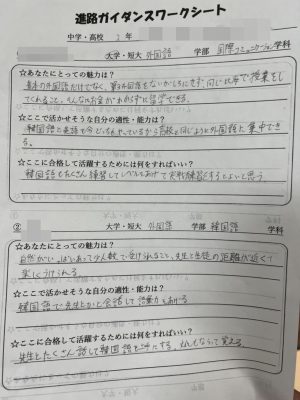 進路ガイダンスワークシート
中学・高校 2年
大学・短大 外国語 学部 国際コミュニケーション学科
☆あなたにとっての魅力は？
基本の外国語だけでなく、第3外国語をないがしろにせず、同じ比率で授業をし
てくれること。そんなにお金がかからずに留学できる。
☆ここで活かせそうな自分の適性・能力は？
韓国語と英語を今どっちもやっているから高校と同じように外国語に集中でき
る。
☆ここに合格して活躍するためには何をすればいい？
韓国語もたくさん練習してレベルをあげて実践練習をするとよいと思う
② 大学・短大 外国語 学部 韓国語 学科
☆あなたにとっての魅力は？
自然がいっぱいあって少人数で受けられること。先生と生徒の距離が近くて
楽しくうけられる。
☆ここで活かせそうな自分の適性・能力は？
韓国語で先生とかと会話して語彙力をあげる
☆ここに合格して活躍するためには何をすればいい？
先生とたくさん話して韓国語を上手にする。